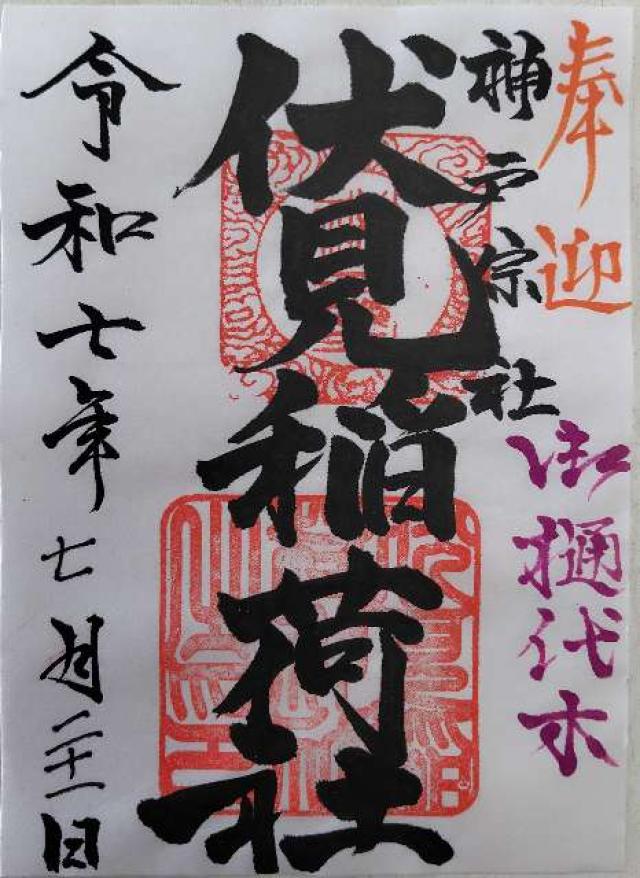 奉迎
御樋代木
神戸宗社
伏見稲荷社
令和七年七月二十一日